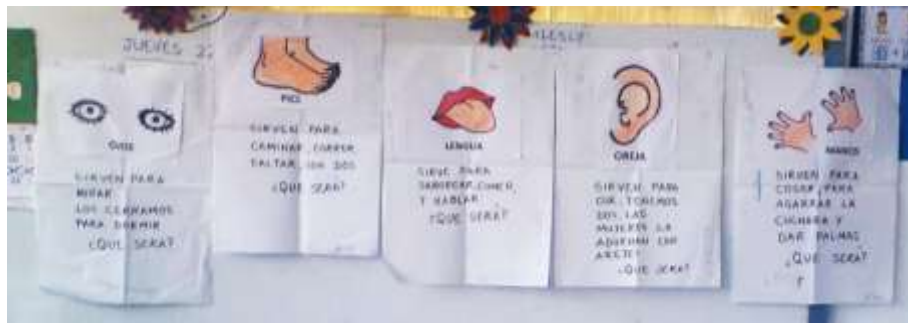 JUEVES 22
OJOS
SIRVEN PARA
MIRAR
LOS CERRAMOS
PARA DORMIR
¿QUE SERÁ?
PIES
SIRVEN PARA
CAMINAR, CORRER
SALTAR, SON DOS
¿QUE SERÁ?
LENGUA
SIRVE PARA
SABOREAR, COMER,
Y HABLAR
¿QUE SERÁ?
OREJA
SIRVEN PARA
OIR, TENEMOS
DOS, LAS
MUJERES LA
ADORNAN CON
ARETES
¿QUE SERA?
MANOS
SIRVEN PARA
COGER, PARA
AGARRAR LA
CUCHARA Y
DAR PALMAS
¿QUE SERÁ?